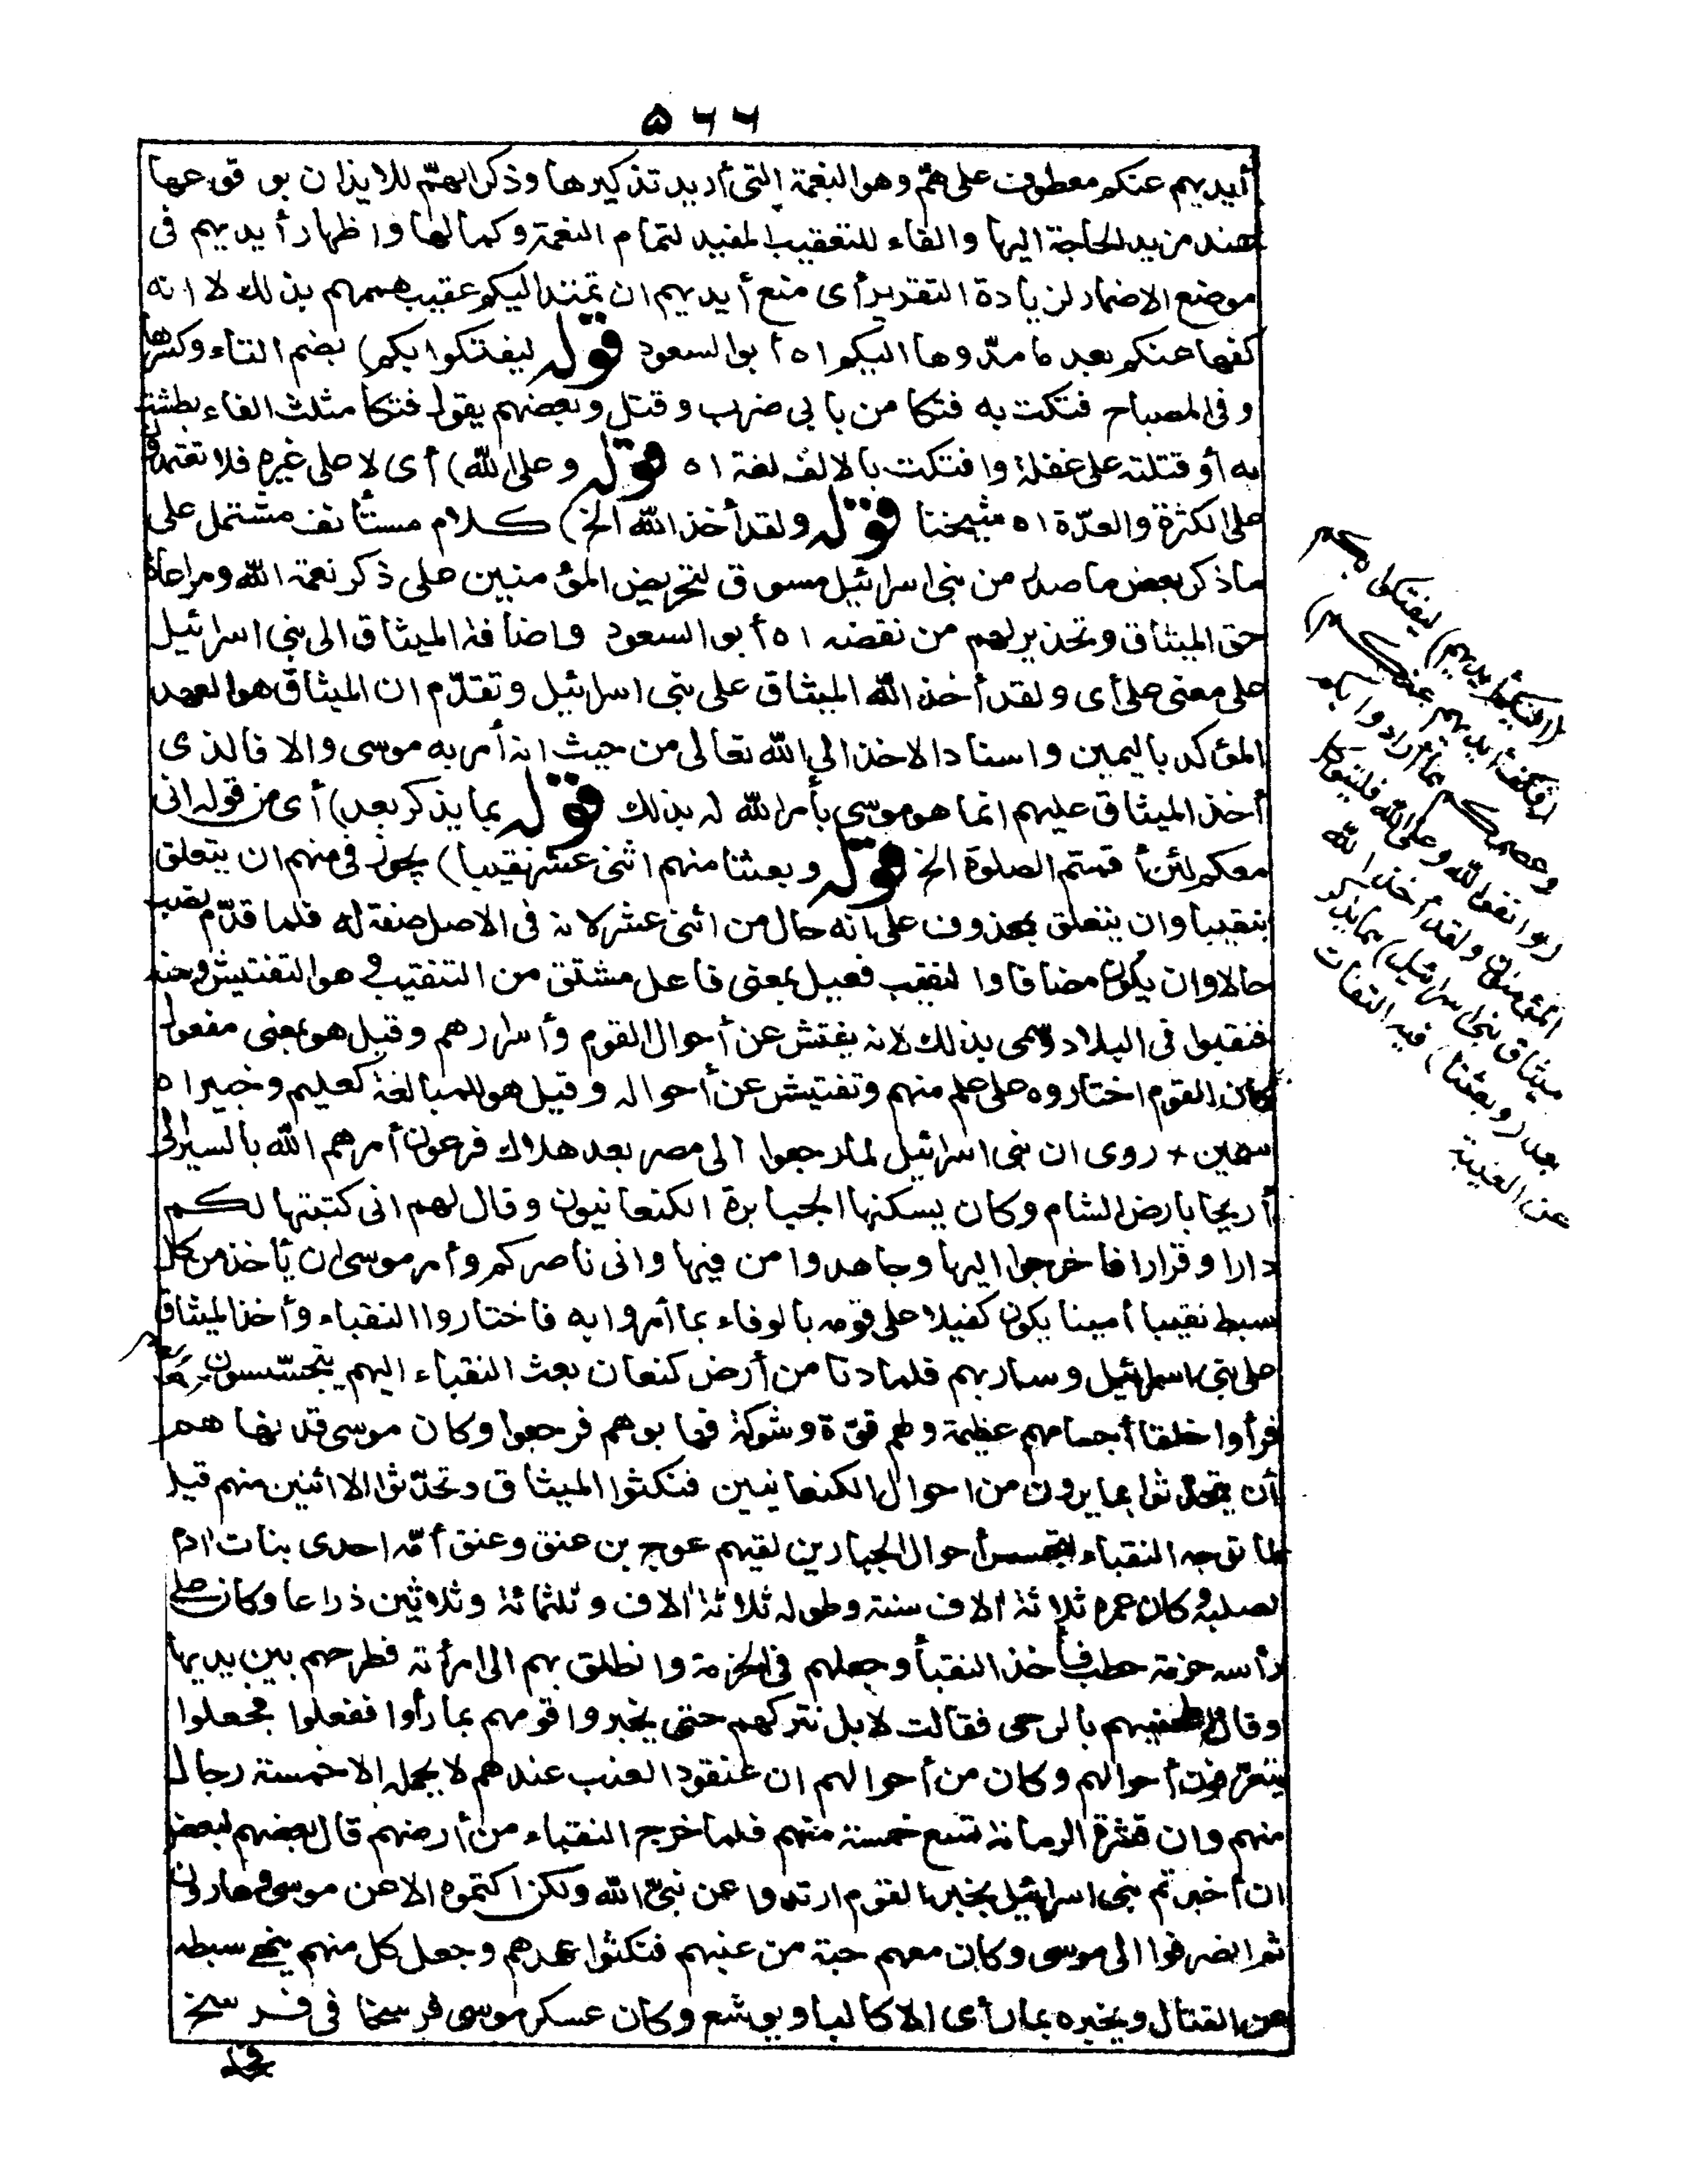 ۵۶۶
أيديهم عنكم معطوف على همّ وهو النعمة التي أريد تذكيرها وذكر الهمّ للايذان بوقوعها
عند مزيد الحاجة اليها والفاء للتعقيب المفيد لتمام النعمة وكمالها واظهار أيديهم فى
موضع الاضمار لزيادة التقرير أى منع أيديهم ان تمتد اليكم عقيب همهم بذلك لا انه
كفها عنكم بعد ما مدّوها اليكم اه أبو السعود قوله ليفتكوا بكم) بضم التاء وكسرها
وفى المصباح فتكت به فتكا من بابى ضرب وقتل وبعضهم يقول فتكا مثلث الفاء بطشت
به أو قتلته على غفلة وافتكت بالالف لغة اه قوله وعلى الله) أى لا على غيره فلا تعتمدوا
على الكثرة والعدّة اه شيخنا قوله ولقد أخذ الله الخ) كلام مستأنف مشتمل على
ما ذكر بعض ما صدر من بنى اسرائيل مسوق لتحريض المؤمنين على ذكر نعمة الله ومراعاة
حق الميثاق وتحذيرلهم من نقضه اه أبو السعود واضافة الميثاق الى بنى اسرائيل
على معنى على أى ولقد أخذ الله الميثاق على بنى اسرائيل وتقدّم ان الميثاق هو العهد
المؤكد باليمين واسناد الاخذ الى الله تعالى من حيث انه أمر به موسى والا فالذى
أخذ الميثاق عليهم انما هو موسى بأمر الله له بذلك قوله بما يذكر بعد) أى من قوله انى
معكم لئن أقمتم الصلوة الخ قوله وبعثنا منهم اثنى عشر نقيبا) يجوز فى منهم ان يتعلق
بنقيبا وان يتعلق بمحذوف على انه حال من اثنى عشر لانه فى الاصل صفة له فلما قدّم نصب
حالا وان يكون مضافا والنقيب فعيل بمعنى فاعل مشتق من التنقيب وهو التفتيش ومنه
فنقبوا فى البلاد وسمى بذلك لانه يفتش عن أحوال القوم وأسرارهم وقيل هو بمعنى مفعول
كان القوم اختاروه على علم منهم وتفتيش عن أحواله وقيل هو للمبالغة كعليم وخبير اه
سمين + روى ان بنى اسرائيل لما رجعوا الى مصر بعد هلاك فرعون أمرهم الله بالسير الى
أريحا بارض الشام وكان يسكنها الجبابرة الكنعانيون وقال لهم انى كتبتها لكم
دارا وقرارا فاخرجوا اليها وجاهدوا من فيها وانى ناصركم وأمر موسى ان يأخذ من كل
سبط نقيبا أمينا يكون كفيلا على قومه بالوفاء بما أمروا به فاختاروا النقباء وأخذ الميثاق
على بنى اسرائيل وسار بهم فلما دنا من أرض كنعان بعث النقباء اليهم يتجسّسون
فرأوا خلقا أجسامهم عظيمة ولهم قوّة وشوكة فهابوهم فرجعوا وكان موسى قد نهاهم
أن يتحدّثوا بما يرون من احوال الكنعانيين فنكثوا الميثاق وتحدّثوا الا اثنين منهم قيل
لما توجه النقباء لتجسس أحوال الجبارين لقيهم عوج بن عنق وعنق أمّه احدى بنات ادم
لصلبه وكان عمره ثلاثة الاف سنة وطوله ثلاثة الاف وثلثمائة وثلاثين ذراعا وكان على
رأسه حزمة حطب فأخذ النقبأ وجعلهم فى الحزمة وانطلق بهم الى امرأته فطرحهم بين يديها
وقال اطحنيهم بالرحى فقالت لا بل نتركهم حتى يخبروا قومهم بما رأوا ففعلوا فجعلوا
يتعرّفون أحوالهم وكان من أحوالهم ان عنقود العنب عندهم لا يحمله الا خمسة رجال
منهم وان قشرة الرمانة تسع خمسة منهم فلما خرج النقباء من أرضهم قال بعضهم لبعض
ان أخبرتم بنى اسرائيل بخبر القوم ارتدوا عن نبىّ الله ولكن اكتموه الا عن موسى وهارون
ثم انصرفوا الى موسى وكان معهم حبة من عنبهم فنكثوا عهدهم وجعل كل منهم ينهى سبطه
عن القتال ويخبره بما رأى الا كالبا ويوشع وكان عسكر موسى فرسخا فى فرسخ
(اليكم أيديهم) ليفتكوا بكم
(فكف أيديهم عنكم)
وعصمكم بما أرادوا بكم
(واتقوا الله وعلى الله فليتوكل
المؤمنون ولقد أخذ الله
ميثاق بنى اسرائيل) بما يذكر
بعد (وبعثنا) فيه التفات
عن الغيبة